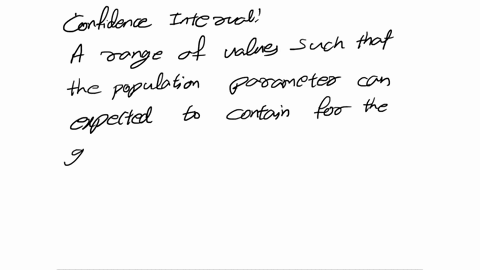 Confidence Interval:
A range of values such that
the population parameter can
expected to contain for the
g